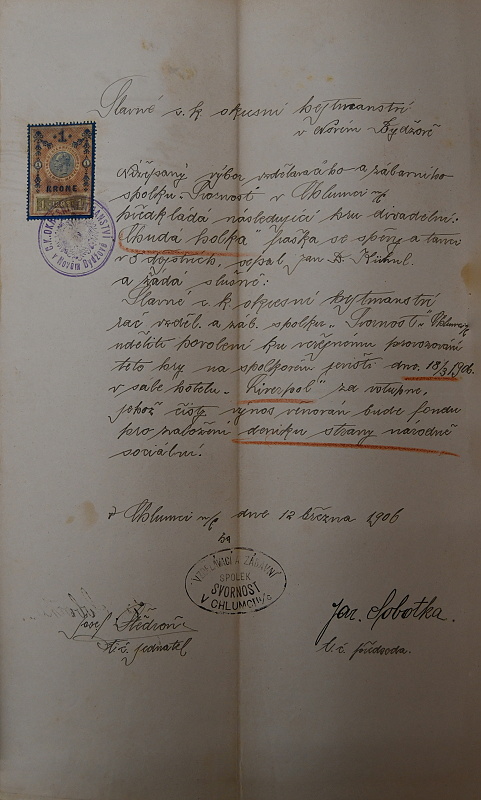 Slavné c. k. okresní hejtmanství
v Novém Bydžově
1
KRONE
C.K. OKR HEJTMANSTVÍ
v Novém Bydžově
výbor vzdělávacího a zábavního
spolku „Svornost" v Chlumci n/c
předkládá následující hru divadelní:
„Chudá holka" fraška se zpěvy a tanci
v 3 dějstvích, sepsal Jan D.
a žádá slušně:
Slavné c. k. okresní hejtmanství
rač vzděl. a záb. spolku „Svornost" v Chlumci n/c
uděliti povolení ku veřejnému provozování
této hry na spolkovém jevišti dne 18/3 1906.
v sále hotelu „Liverpol" za vstupné,
jehož čistý výnos věnován bude fondu
pro založení deníku strany národně
sociální.
V Chlumci n/c dne 12 března 1906
VZDĚLÁVACÍ A ZÁBAVNÍ
SPOLEK
SVORNOST
V CHLUMCI N/C
Josef
t. č. jednatel
Jar. Sobotka.
t. č. předseda.